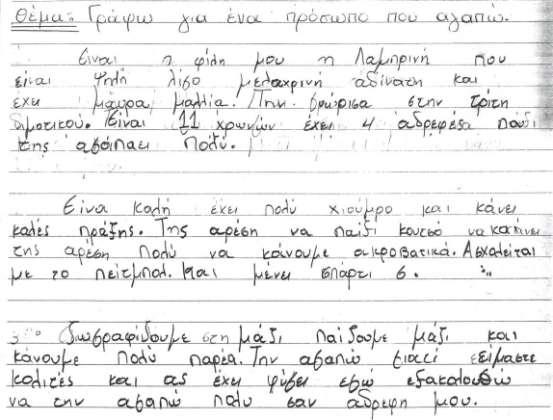 Θέμα: Γράφω για ένα πρόσωπο που αγαπώ.
Είναι η φίλη μου η Λαμπρινή που
είναι ψηλή λίγο μελαχρινή αδίνατη και
έχει μαύρα μαλλια. Την γνώρισα στην τρίτη
δημοτικού. Είναι 11 χρωνών έχει 4 αδρεφέσα που
της αγάπαει πολύ.
Είνα καλή έχει πολύ χιούμρο και κάνει
καλές πράξης. Της αρέση να παίδι κουτσό να κα
της αρέση πολύ να κάνουμε ακροβατικά. Ασχαλείται
με το πείτμπολ. Και μένει σπάρτι 6.
ζωγραφίδουμε στη μάζι παίδουμε μάζι και
κάνουμε πολύ παρέα. Την αγαπώ γιατί είμαστε
κολιτές και ας έχει φύγει εγώ εξακολουθώ
να την αγαπώ πολυ σαν αδρεφη μου.